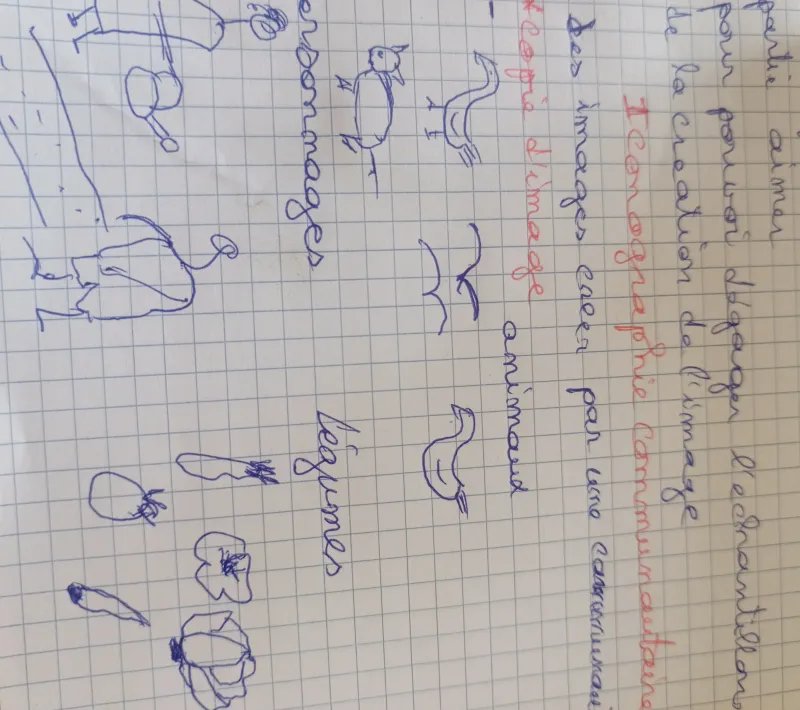 partie aimer
pour pouvoi dégager l'echantillon
de la creation de l'image
Iconographie communautaire
Des images creer par une communau
*copie d'image
animaux
ersonnages
légumes